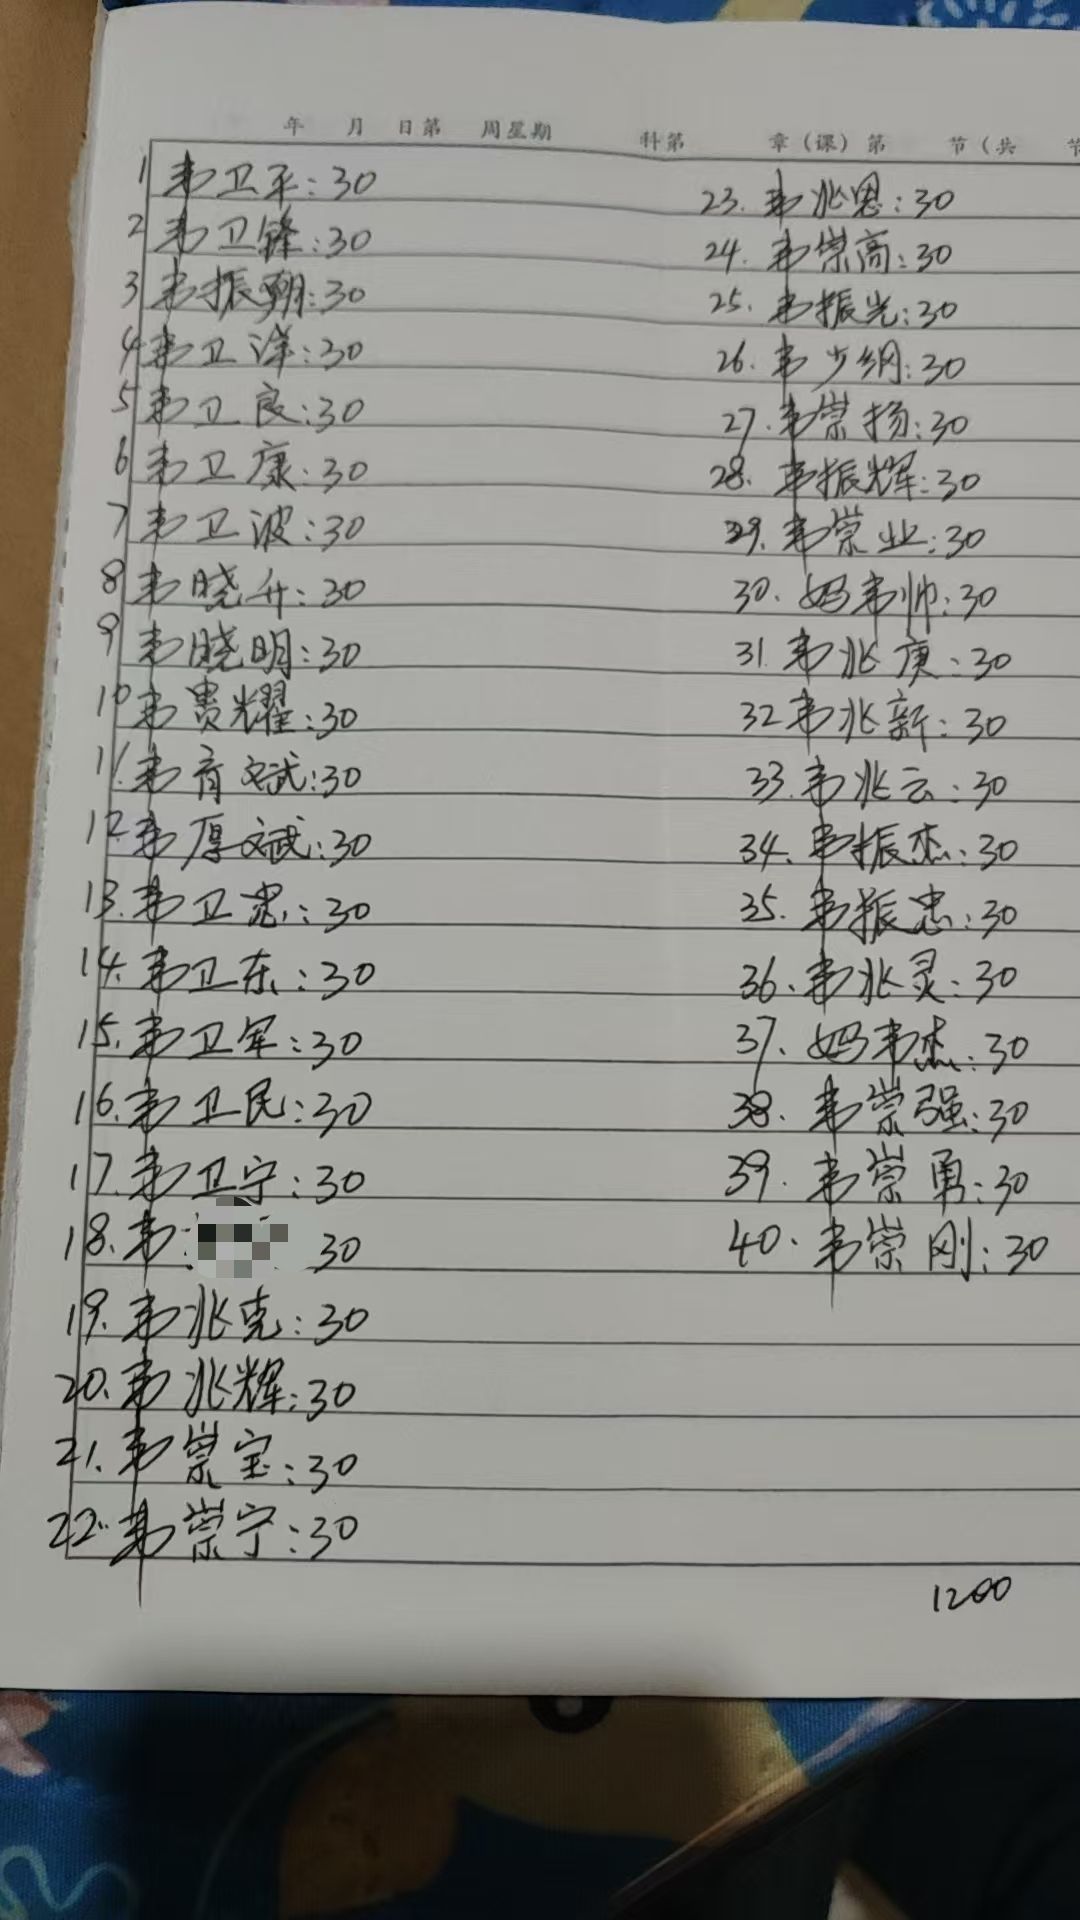 年 月 日第 周星期 科第 章（课）第 节（共 节
1 韦卫平：30
2 韦卫锋：30
3 韦振翔：30
4 韦卫洋：30
5 韦卫良：30
6 韦卫康：30
7 韦卫波：30
8 韦晓升：30
9 韦晓明：30
10 韦贵耀：30
11. 韦育斌：30
12. 韦厚斌：30
13. 韦卫忠：30
14. 韦卫东：30
15. 韦卫军：30
16. 韦卫民：30
17. 韦卫宁：30
18. 韦 30
19. 韦兆克：30
20. 韦兆辉：30
21. 韦崇宝：30
22. 韦崇宁：30
23. 韦兆恩：30
24. 韦崇高：30
25. 韦振光：30
26. 韦少纲：30
27. 韦崇扬：30
28. 韦振辉：30
29. 韦崇业：30
30. 妈韦帅：30
31. 韦兆庚：30
32 韦兆新：30
33. 韦兆云：30
34. 韦振杰：30
35. 韦振忠：30
36. 韦兆灵：30
37. 妈韦杰：30
38. 韦崇强：30
39. 韦崇勇：30
40. 韦崇刚：30
1200